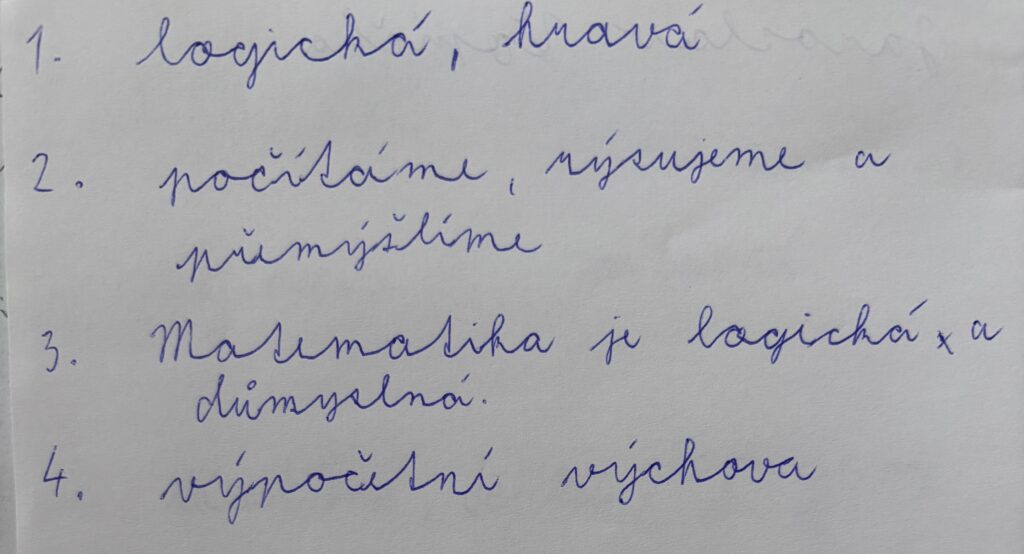 1. logická, hravá
2. počítáme, rýsujeme a
přemýšlíme
3. Matematika je logická a
důmyslná.
4. výpočetní výchova